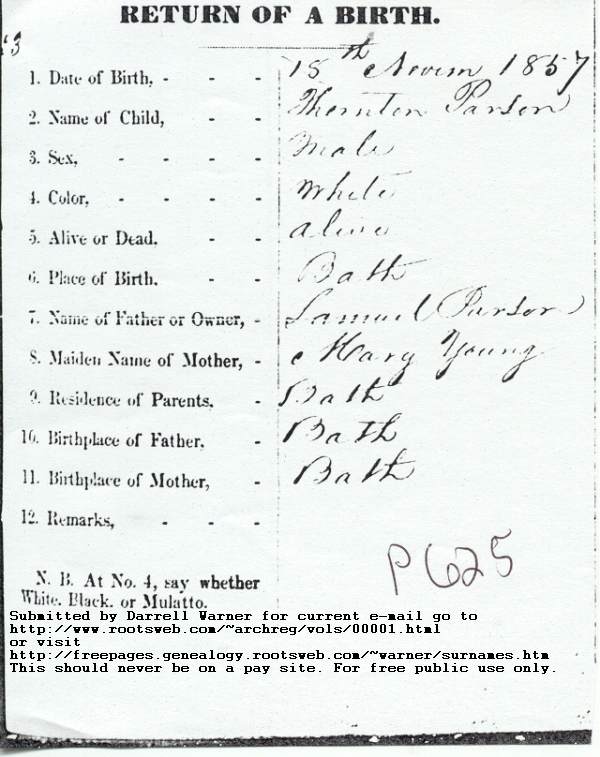 RETURN OF A BIRTH.
1. Date of Birth, - - - 18th Novem 1857
2. Name of Child, - - Thornton Parson
3. Sex, - - - - Male
4. Color, - - - - White
5. Alive or Dead. - - alive
6. Place of Birth. - - Bath
7. Name of Father or Owner, - Samuel Parson
8. Maiden Name of Mother, - Mary Young
9. Residence of Parents. - Bath
10. Birthplace of Father. - Bath
11. Birthplace of Mother, - Bath
12. Remarks, - - -
P625
N. B. At No. 4, say whether
White. Black. or Mulatto.
Submitted by Darrell Warner for current e-mail go to
http://www.rootsweb.com/~archreg/vols/00001.html
or visit
http://freepages.genealogy.rootsweb.com/~warner/surnames.htm
This should never be on a pay site. For free public use only.